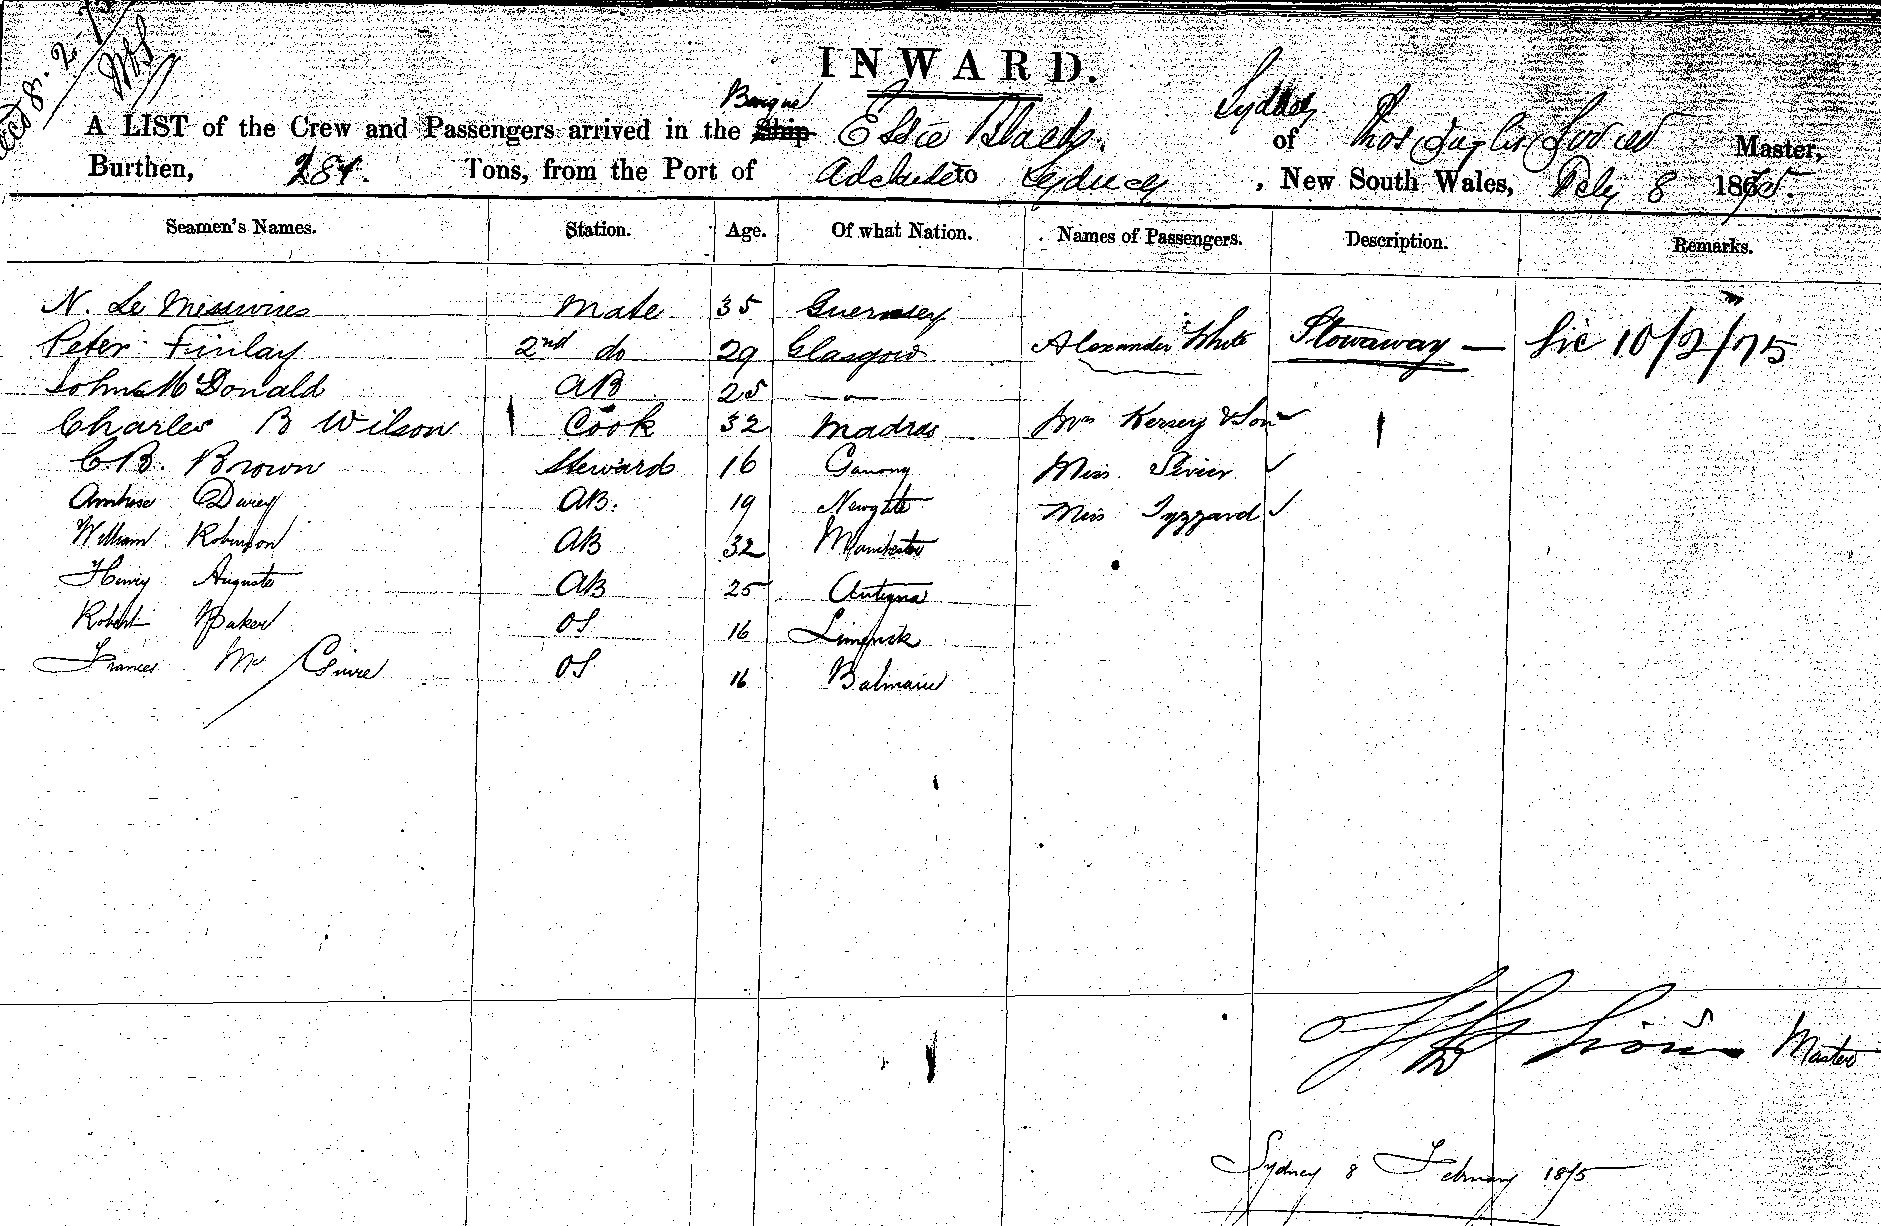 INWARD.
Barque Sydney
A LIST of the Crew and Passengers arrived in the Ship Essie Black. of Thos Master,
Burthen, 281. Tons, from the Port of Adelaide to Sydney, New South Wales, Feby 8 1875.
Seamen's Names. Station. Age. Of what Nation. Names of Passengers. Description. Remarks.
N. Le Messurier Mate 35 Guernsey
Peter Finlay 2nd do 29 Glasgow Alexander White Stowaway — 10/2/75
John McDonald AB 25 — " —
Charles B Wilson Cook 32 Madras Mrs Kersey & Son
C.B. Brown Stewards 16
Ambrose AB. 19 Miss
William Robinson AB 32 Manchester Miss Tyzzard
Henry Auguste AB 25 Antigua
Robert Baker OS 16 Limerick
Frances Mc OS 16 Balmain
Master
Sydney 8 February 1875